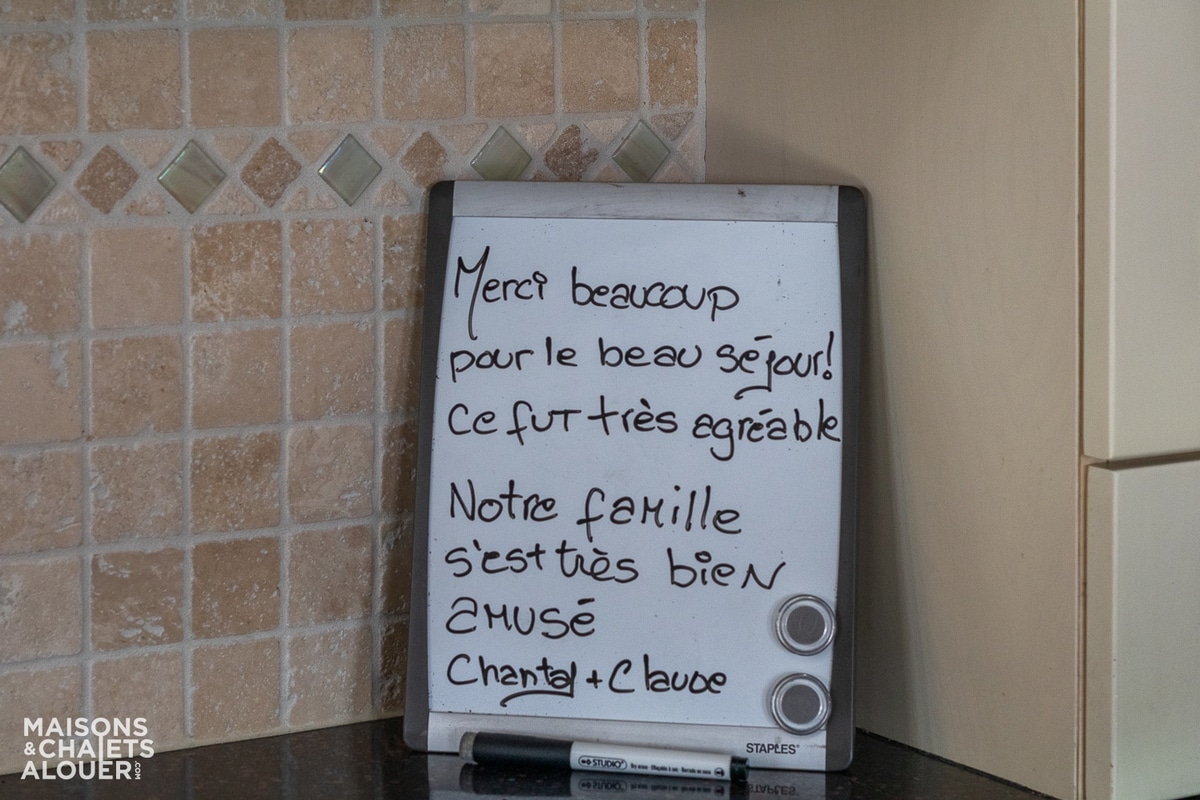 Merci beaucoup
pour le beau séjour!
Ce fut très agréable
Notre famille
s'est très bien
amusé
Chantal + Claude
STAPLES
STUDIO
MAISONS
&CHALETS
ALOUER.COM